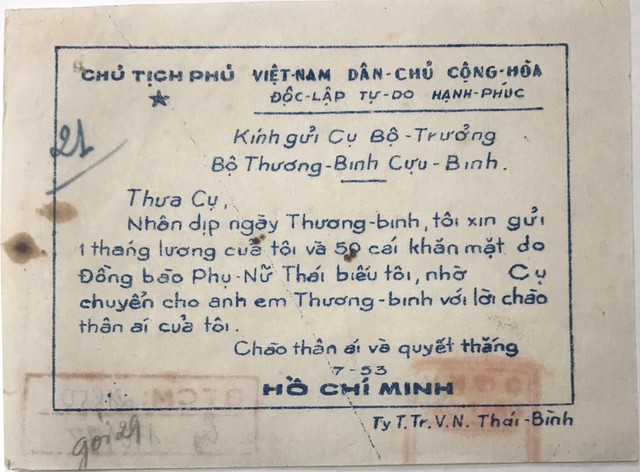 CHỦ TỊCH PHỦ
VIỆT-NAM DÂN-CHỦ CỘNG-HÒA
ĐỘC-LẬP TỰ-DO HẠNH-PHÚC
21
Kính gửi Cụ Bộ-Trưởng
Bộ Thương-Binh Cựu-Binh.
Thưa Cụ,
Nhân dịp ngày Thương-binh, tôi xin gửi
1 tháng lương của tôi và 50 cái khăn mặt do
Đồng bào Phụ-Nữ Thái biếu tôi, nhờ Cụ
chuyển cho anh em Thương-binh với lời chào
thân ái của tôi.
Chào thân ái và quyết thắng
7-53
HỒ CHÍ MINH
Ty T.Tr.V.N. Thái-Bình
BTCM:
gói 29